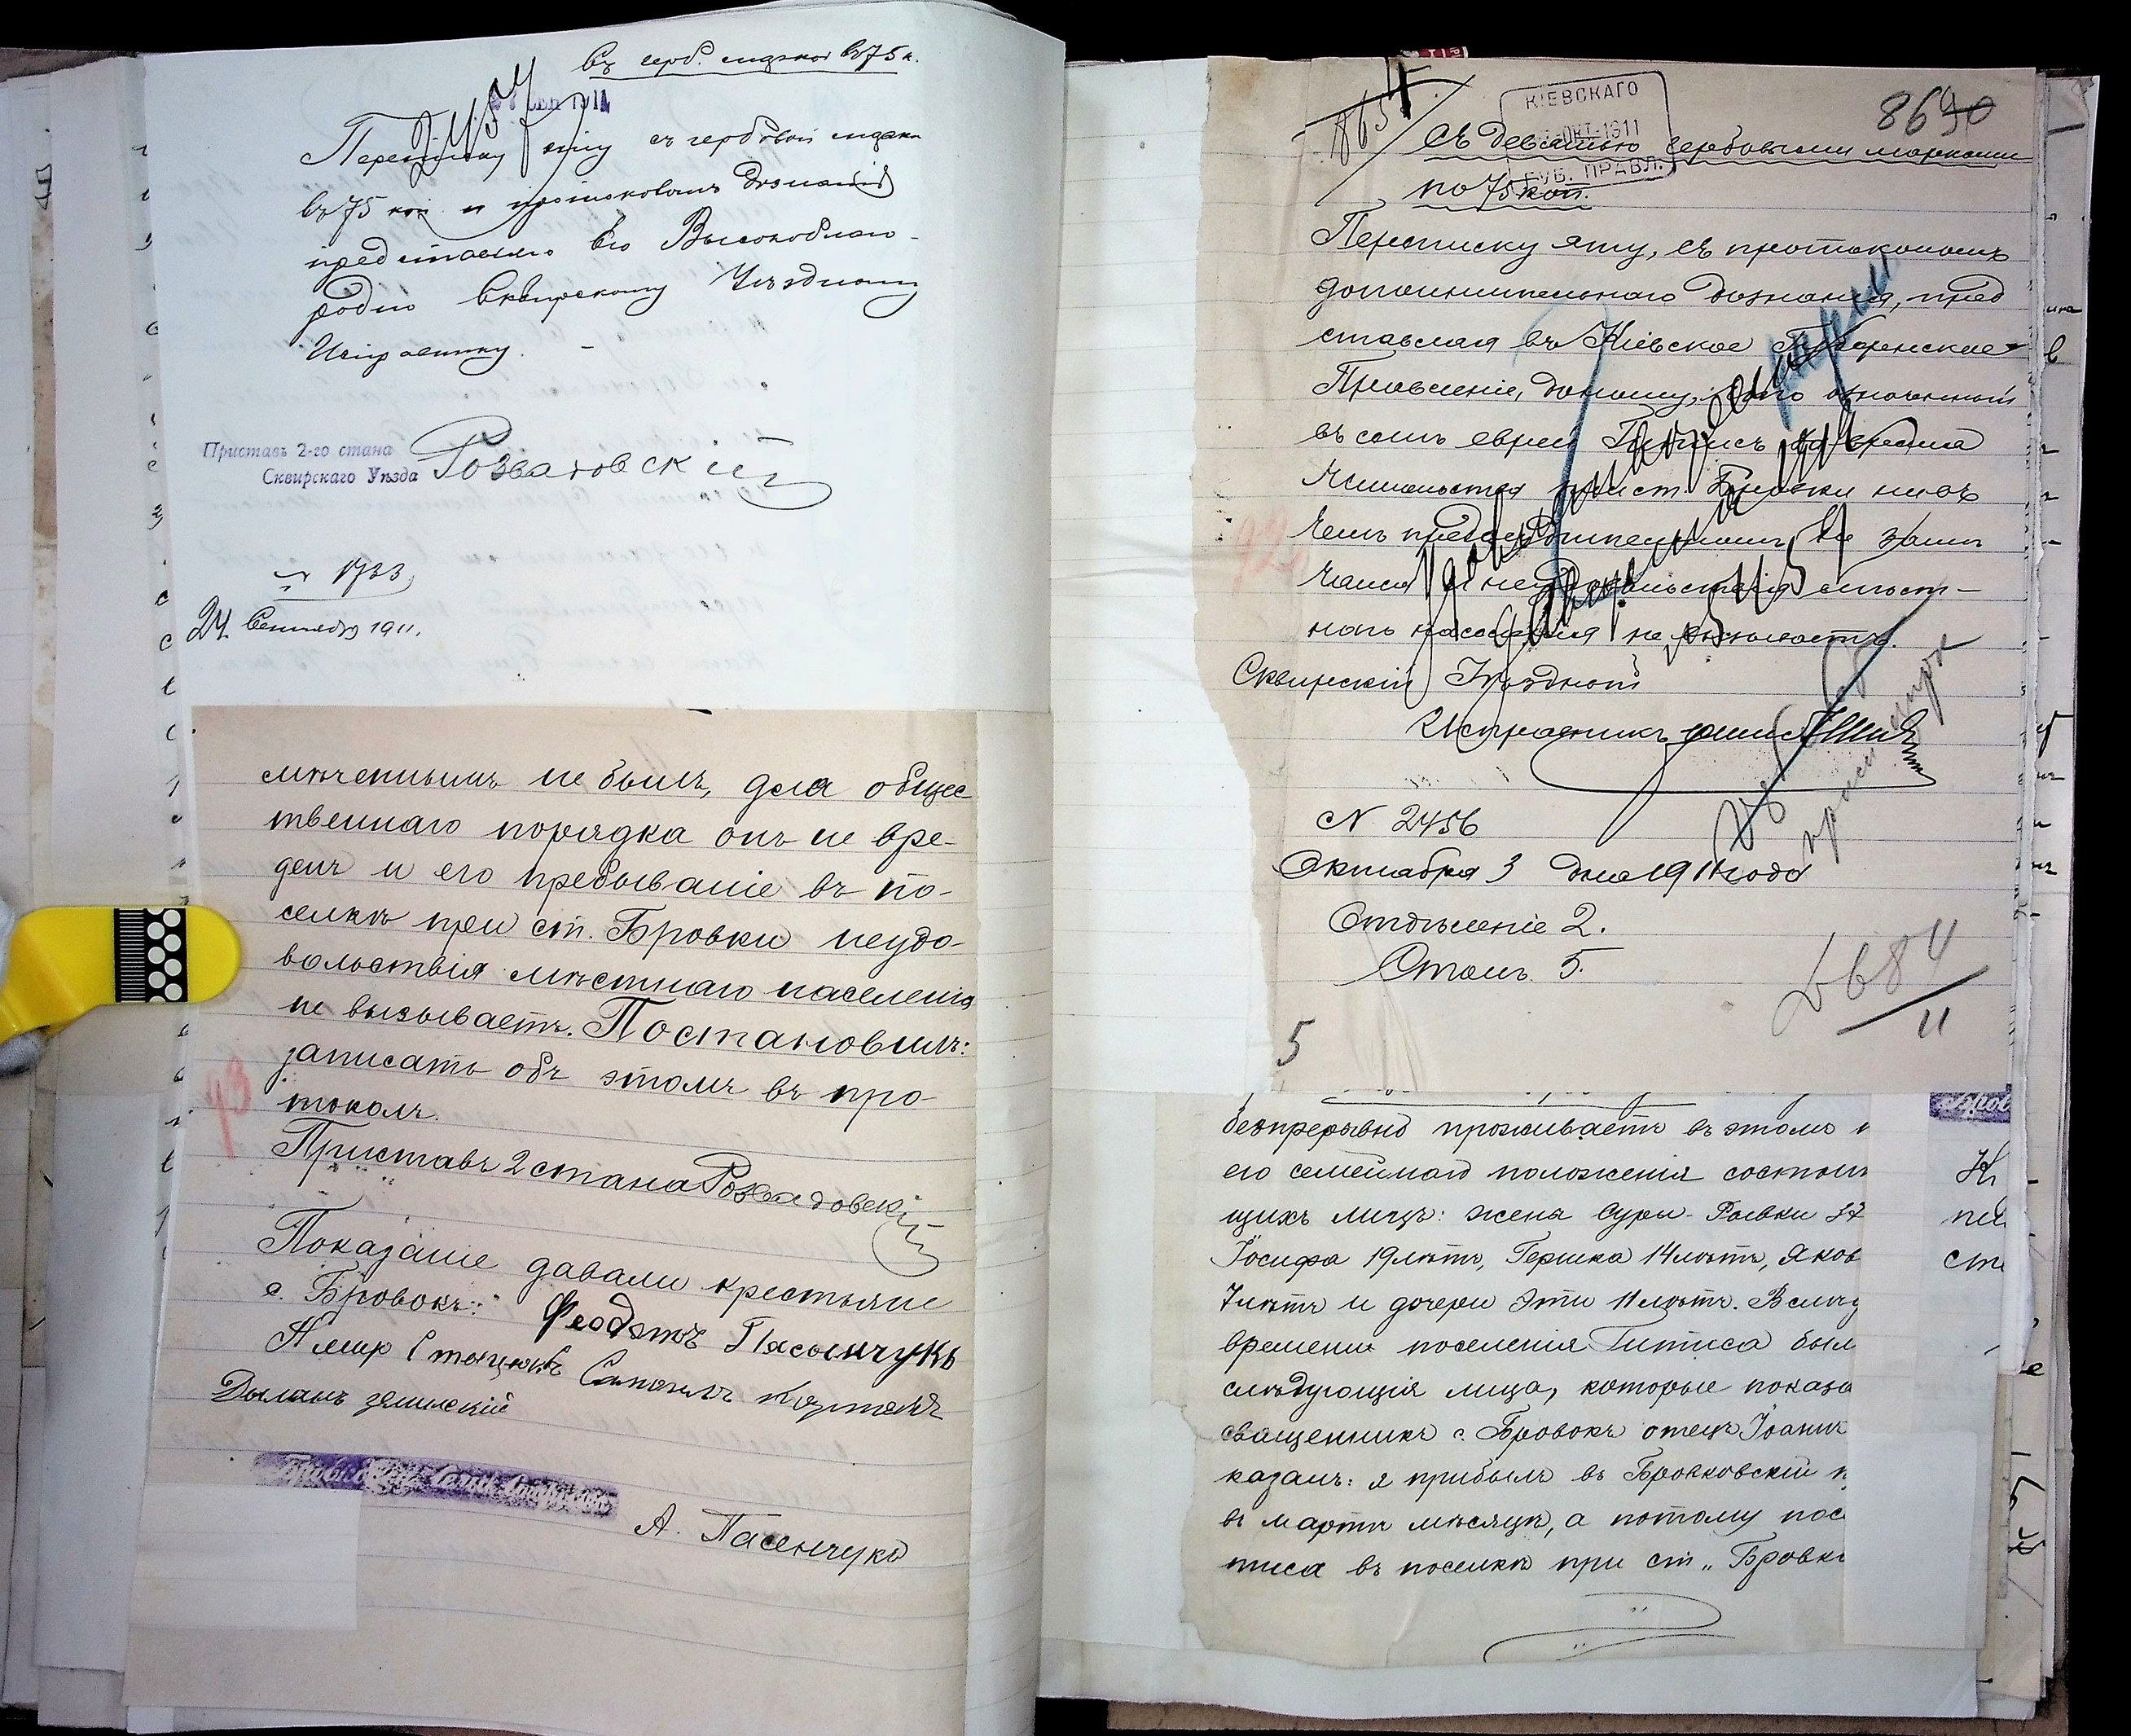 Съ герб. маркой въ 75 к.
Переписку эту съ гербовой марк
въ 75 коп и протоколомъ дознанія
представляю Его Высокоблаго-
родію Сквирскому Уѣздному
Исправнику. -
Приставъ 2-го стана
Сквирскаго Уѣзда
№ 1733
24 Сентября 1911.
мѣченнымъ не былъ, для общес
твеннаго порядка онъ не вре-
денъ и его пребываніе въ по-
селкѣ при ст. Бровки неудо-
вольствія мѣстнаго населенія
не вызываетъ. Постановилъ:
записать объ этомъ въ про-
токолъ.
Приставъ 2 стана Розвадовскій
93
Показаніе давали крестьяне
с. Бровокъ: Феодотъ Пасенчукъ
А. Пасенчукъ
8654
КІЕВСКАГО
ОКТ. 1911
ГУБ. ПРАВЛ.
8690
Съ девятью гербовыми марками
по 75 коп.
Переписку эту, съ протоколомъ
дополнительнаго дознанія, пред
ставляя въ Кіевское Губернское
Правленіе, доношу, что означенный
въ семъ еврей Гитисъ во время
жительства при ст. Бровки ни въ
чемъ предосудительномъ не замѣ
чался и неудовольствія мѣст-
наго населенія не вызываетъ.
92
Сквирскій Уѣздной
Исправникъ
№ 2456
Октября 3 дня 1911 года
Отдѣленіе 2.
Столъ 5.
2684
11
5
безпрерывно проживаетъ въ этомъ п
его семейнаго положенія состоит
щихъ лицъ: жена Сури-Ривки 37
Іосифа 19 лѣтъ, Гершка 14 лѣтъ, Яков
7 лѣтъ и дочери Эти 11 лѣтъ.
времени поселенія Гитиса был
слѣдующія лица, которые показа
священникъ с. Бровокъ отецъ Іоаннъ
казалъ: я прибылъ въ Бровковскій п
въ мартѣ мѣсяцѣ, а потому пос
тиса въ поселкѣ при ст. „Бровки